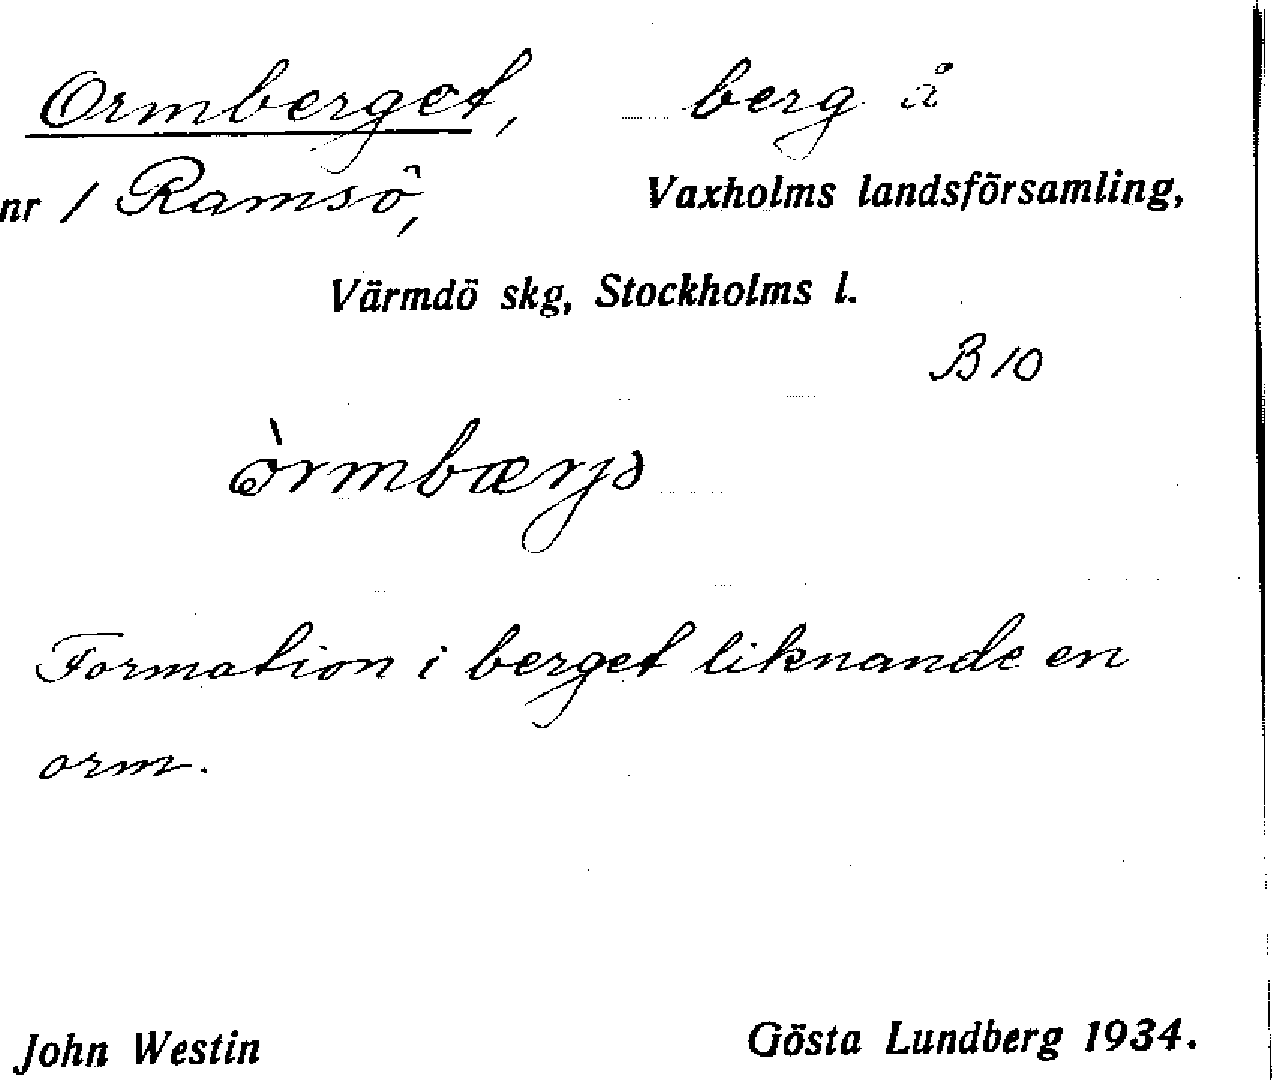 Ormberget, berg å
nr 1 Ramsö, Vaxholms landsförsamling,
Värmdö skg, Stockholms l.
B 10
òrmbærjə
Formation i berget liknande en
orm.
John Westin Gösta Lundberg 1934.